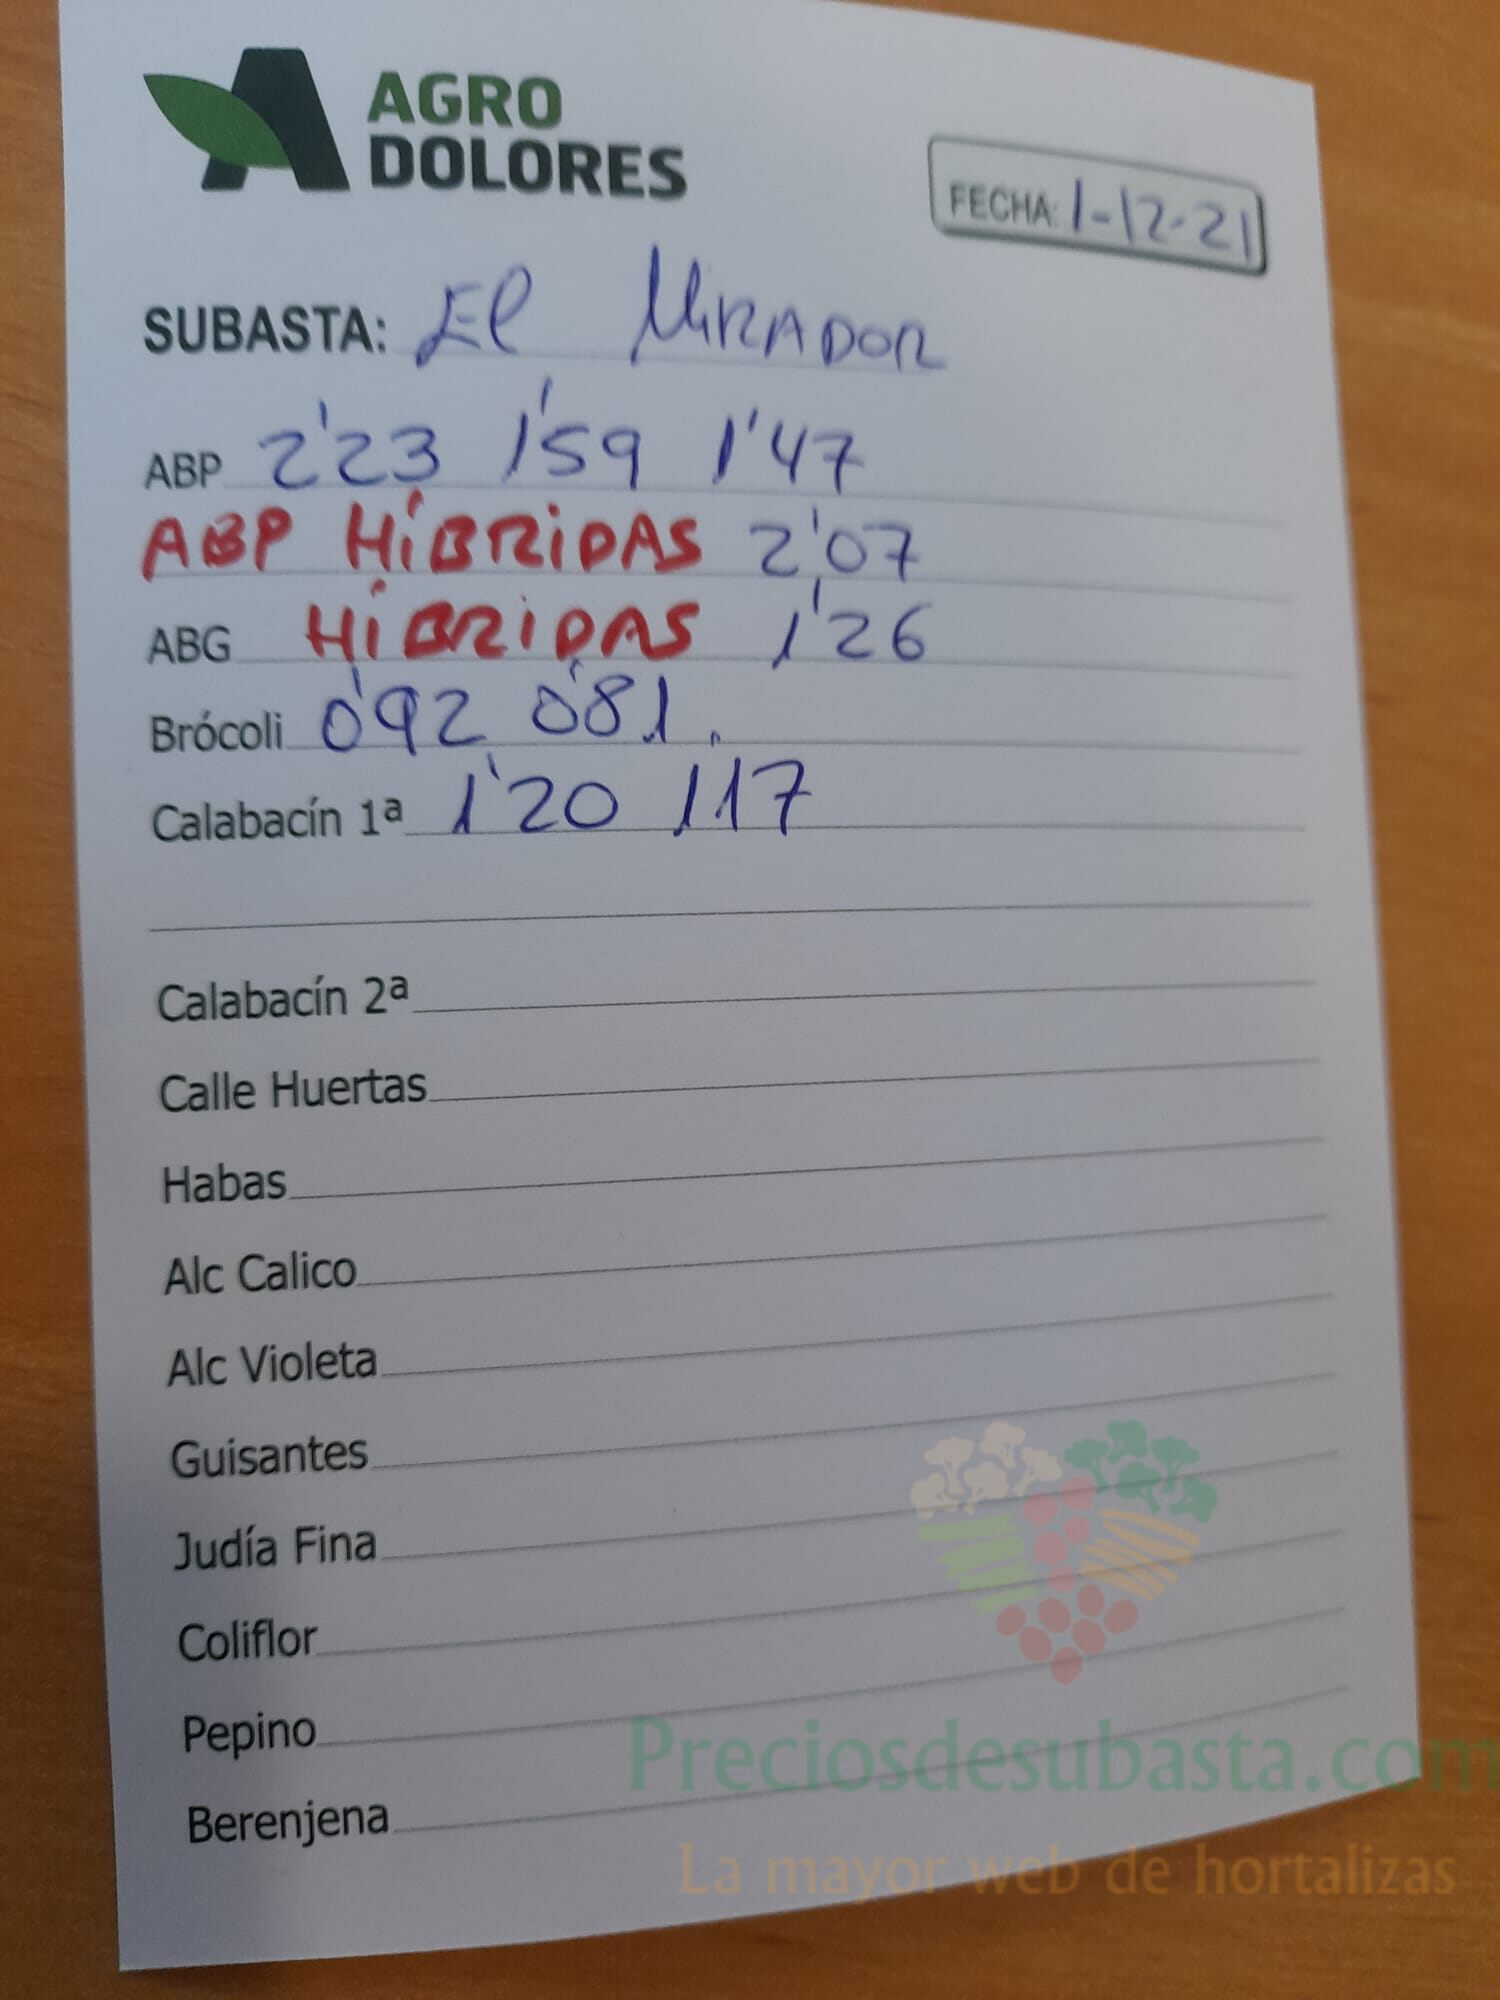 AGRO
DOLORES
FECHA: 1-12-21
SUBASTA: El MIRADOR
ABP 2'23 1'59 1'47
ABP HÍBRIDAS 2'07
ABG HÍBRIDAS 1'26
Brócoli 0'92 0'81.
Calabacín 1ª 1'20 1'17
Calabacín 2ª
Calle Huertas
Habas
Alc Calico
Alc Violeta
Guisantes
Judía Fina
Coliflor
Pepino
Preciosdesubasta.com
Berenjena
La mayor web de hortalizas